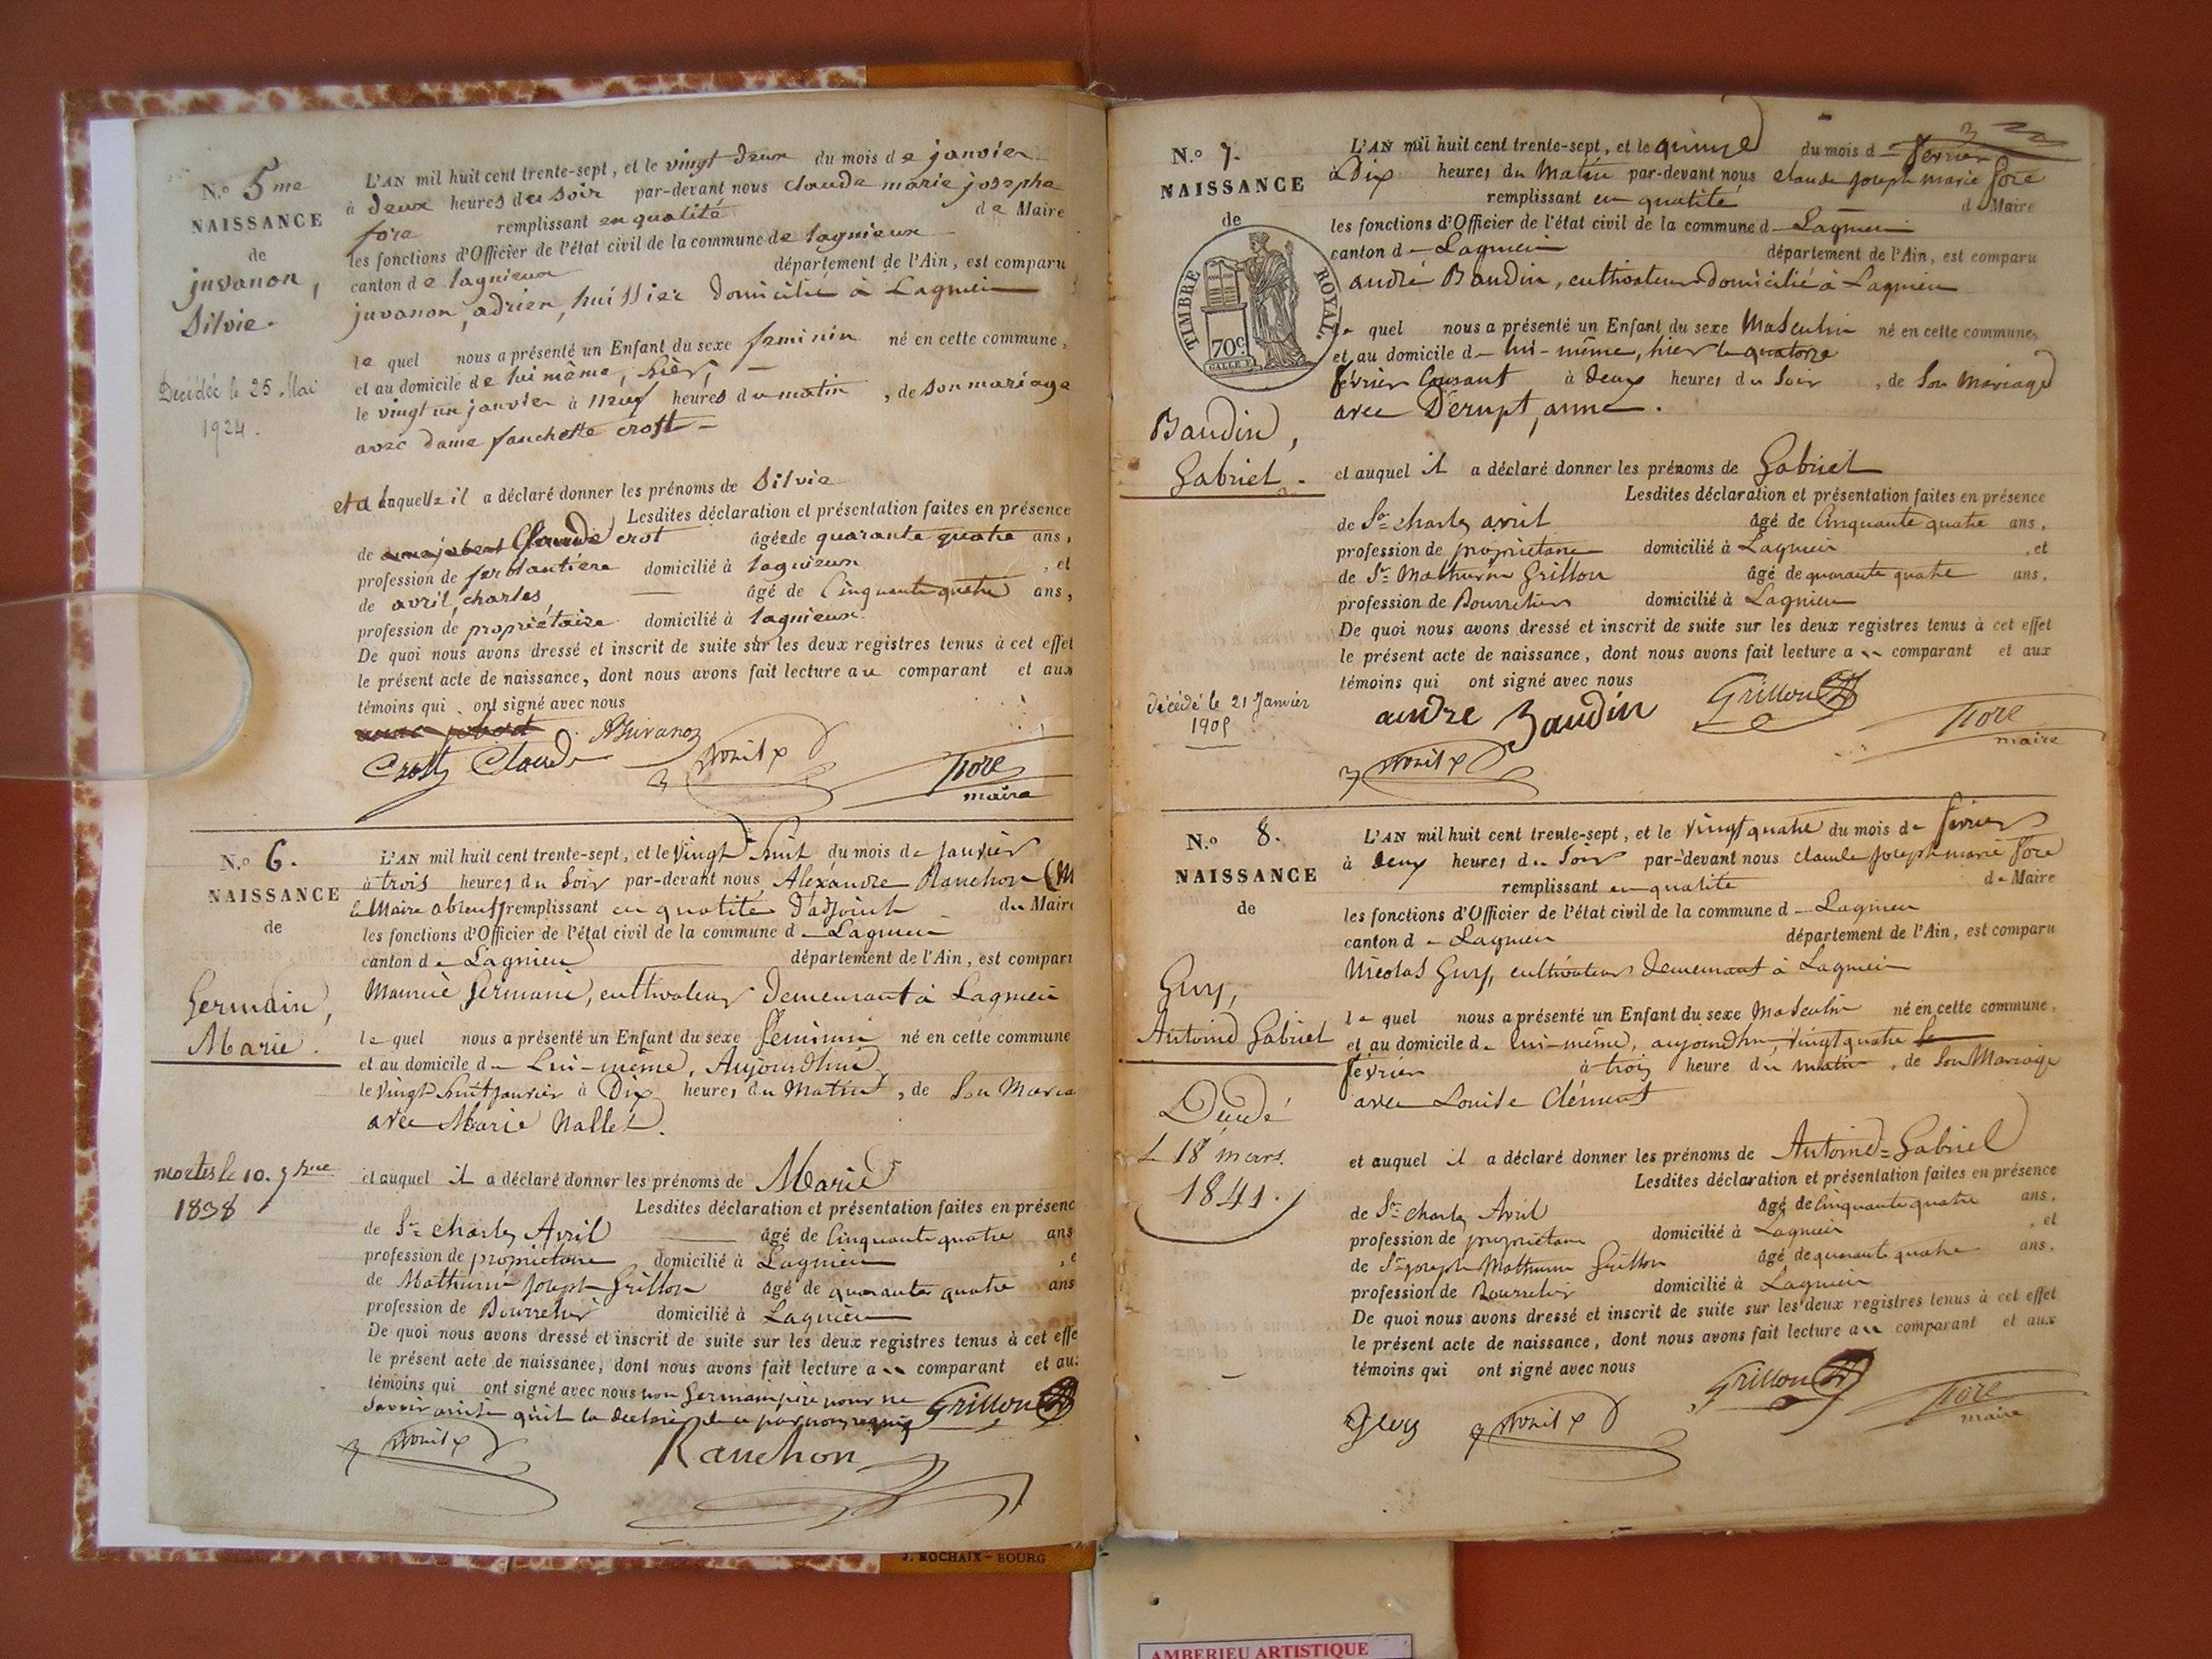 N.o 5me
NAISSANCE
de
juvanon,
Silvie.
Décédée le 25 Mai
1924.
L'AN mil huit cent trente-sept, et le vingt deux du mois de janvier
à deux heures du soir par-devant nous claude marie josephe
fore remplissant en qualité de Maire
les fonctions d'Officier de l'état civil de la commune de lagnieux
canton de lagnieux département de l'Ain, est comparu
juvanon, adrien, huissier domicilié à Lagnieu
le quel nous a présenté un Enfant du sexe feminin né en cette commune,
et au domicile de lui même, hièr,
le vingt un janvier à neuf heures du matin, de son mariage
avec dame fanchette crost
et a laquelle il a déclaré donner les prénoms de Silvie
Lesdites déclaration et présentation faites en présence
de Claude crot âgée de quarante quatre ans,
profession de ferblantière domicilié à lagnieux, et
de avril, charles, âgé de Cinquante quatre ans,
profession de propriétaire domicilié à lagnieux
De quoi nous avons dressé et inscrit de suite sur les deux registres tenus à cet effet
le présent acte de naissance, dont nous avons fait lecture au comparant et aux
témoins qui ont signé avec nous
Crott Claude Avril fore
maire
N.o 6.
NAISSANCE
de
Germain,
Marie.
mortes le 10. 9bre
1838
L'AN mil huit cent trente-sept, et le Vingt huit du mois de Janvier
à trois heures du Soir par-devant nous Alexandre Ranchon
le Maire absent remplissant en qualité d'adjoint du Maire
les fonctions d'Officier de l'état civil de la commune de Lagnieu
canton de Lagnieu département de l'Ain, est comparu
Maurice Germain, cultivateur demeurant à Lagnieu
le quel nous a présenté un Enfant du sexe féminin né en cette commune
et au domicile de Lui-même, Aujourdhui
le vingt huit janvier à Dix heures du Matin, de Son Maria
avec Marie Nallet.
et auquel il a déclaré donner les prénoms de Marie
Lesdites déclaration et présentation faites en présenc
de Sr charles Avril âgé de Cinquante quatre ans
profession de propriétaire domicilié à Lagnieu
de Mathurin Joseph Grillon âgé de quarante quatre ans
profession de Bourrelier domicilié à Lagnieu
De quoi nous avons dressé et inscrit de suite sur les deux registres tenus à cet effe
le présent acte de naissance, dont nous avons fait lecture au comparant et au
témoins qui ont signé avec nous non Germain père pour ne
Savoir écrire Grillon
Avril Ranchon
N.o 7.
NAISSANCE
de
TIMBRE ROYAL.
70c
Baudin,
Gabriel.
décédé le 21 Janvier
L'AN mil huit cent trente-sept, et le quinze du mois de fevrier
à Dix heures du Matin par-devant nous claude Joseph marie fore
remplissant en qualité de Maire
les fonctions d'Officier de l'état civil de la commune de Lagnieu
canton de Lagnieu département de l'Ain, est comparu
andré Baudin, cultivateur domicilié à Lagnieu
le quel nous a présenté un Enfant du sexe Masculin né en cette commune,
et au domicile de lui-même, hier le quatorze
février Courant à Deux heures du Soir, de Son Mariage
avec Derupt, anne.
et auquel il a déclaré donner les prénoms de Gabriel
Lesdites déclaration et présentation faites en présence
de Sr charles avril âgé de Cinquante quatre ans,
profession de propriétaire domicilié à Lagnieu, et
de Sr Mathurin Grillon âgé de quarante quatre ans,
profession de Bourrelier domicilié à Lagnieu
De quoi nous avons dressé et inscrit de suite sur les deux registres tenus à cet effet
le présent acte de naissance, dont nous avons fait lecture au comparant et aux
témoins qui ont signé avec nous
andre Baudin Grillon fore
maire
Avril
N.o 8.
NAISSANCE
de
Guy,
Antoine Gabriel
Décédé
le 18 mars
1841.
L'AN mil huit cent trente-sept, et le Vingt quatre du mois de fevrier
à deux heures du Soir par-devant nous claude Joseph marie fore
remplissant en qualité de Maire
les fonctions d'Officier de l'état civil de la commune de Lagnieu
canton de Lagnieu département de l'Ain, est comparu
Nicolas Guy, cultivateur demeurant à Lagnieu
le quel nous a présenté un Enfant du sexe Masculin né en cette commune,
et au domicile de lui-même, aujourdhui, vingt quatre
février à trois heure du matin, de Son Mariage
avec Louise Clément
et auquel il a déclaré donner les prénoms de Antoine=Gabriel
Lesdites déclaration et présentation faites en présence
de Sr charles Avril âgé de Cinquante quatre ans,
profession de propriétaire domicilié à Lagnieu, et
de Sr Joseph Mathurin Grillon âgé de quarante quatre ans,
profession de Bourrelier domicilié à Lagnieu
De quoi nous avons dressé et inscrit de suite sur les deux registres tenus à cet effet
le présent acte de naissance, dont nous avons fait lecture au comparant et aux
témoins qui ont signé avec nous
Grillon fore
maire
Avril
J. ROCHAIX - BOURG
AMBERIEU ARTISTIQUE